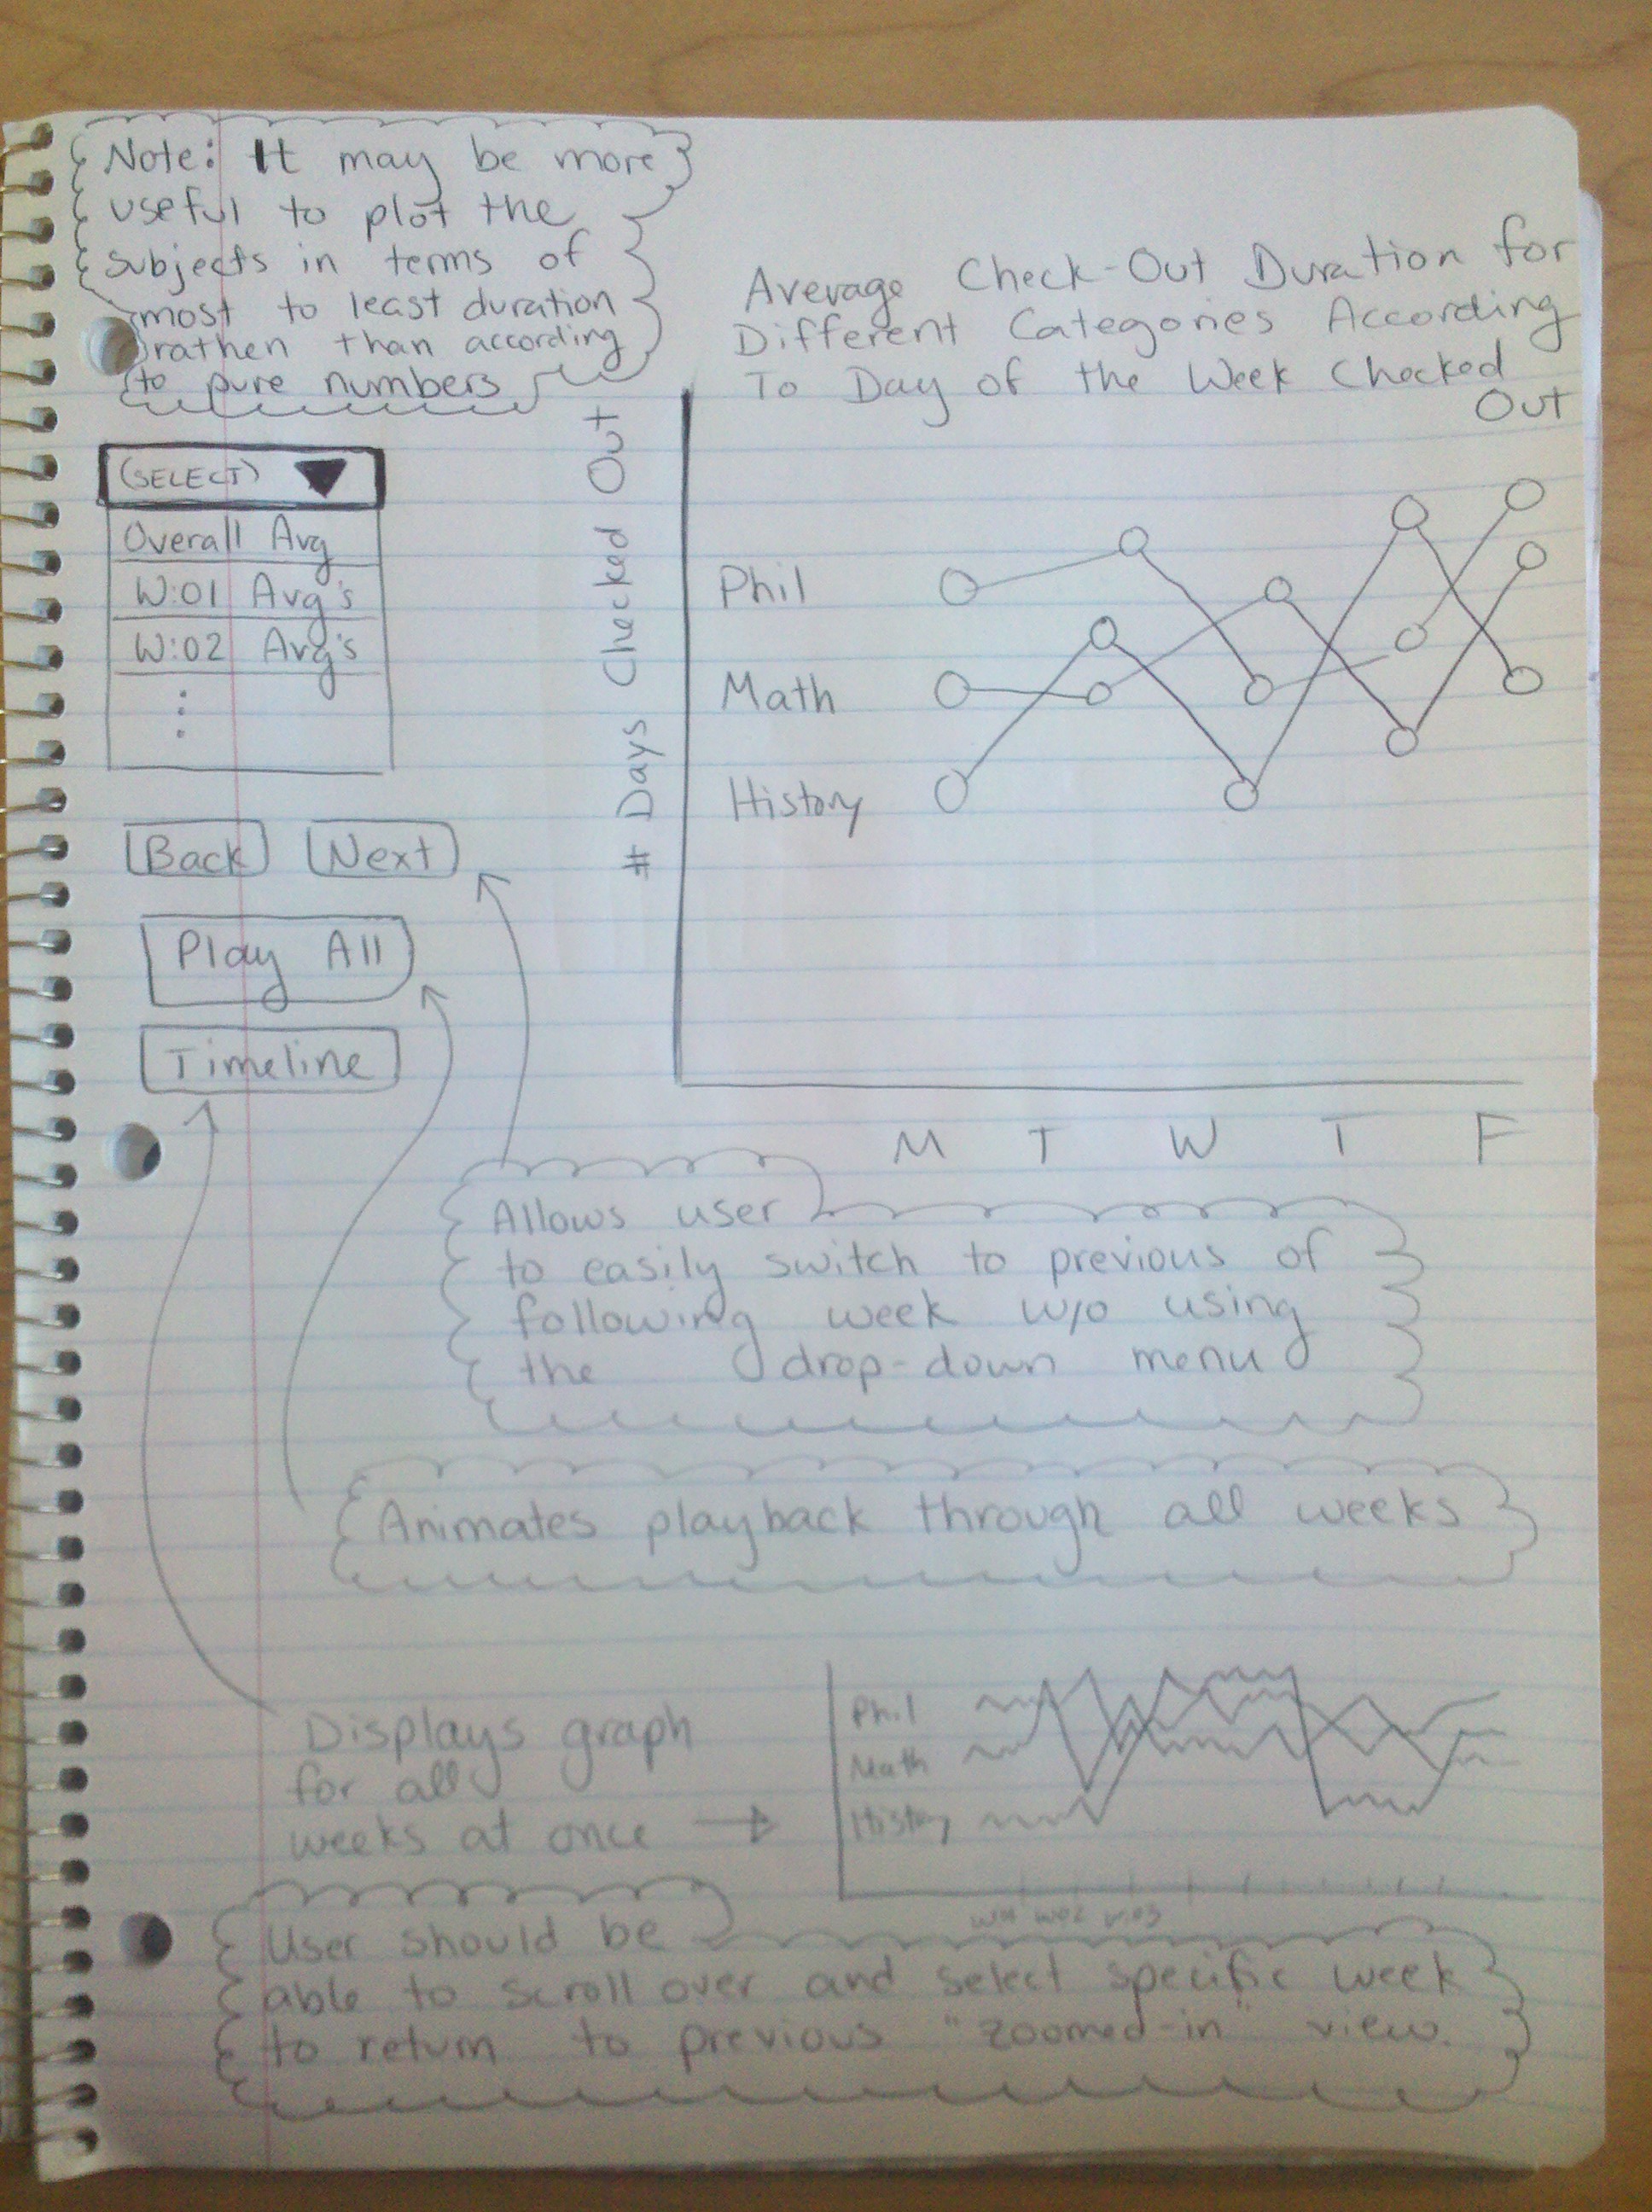 Note: It may be more
useful to plot the
subjects in terms of
most to least duration
rathen than according
to pure numbers
Average Check-Out Duration for
Different Categories According
To Day of the Week Checked
Out
(SELECT)
Overall Avg
W:01 Avg's
W:02 Avg's
Back Next
Play All
Timeline
# Days Checked Out
Phil
Math
History
M T W T F
Allows user
to easily switch to previous of
following week w/o using
the drop-down menu
Animates playback through all weeks
Displays graph
for all
weeks at once
Phil
Math
History
W01 W02 W03
User should be
able to scroll over and select specific week
to return to previous "zoomed-in" view.